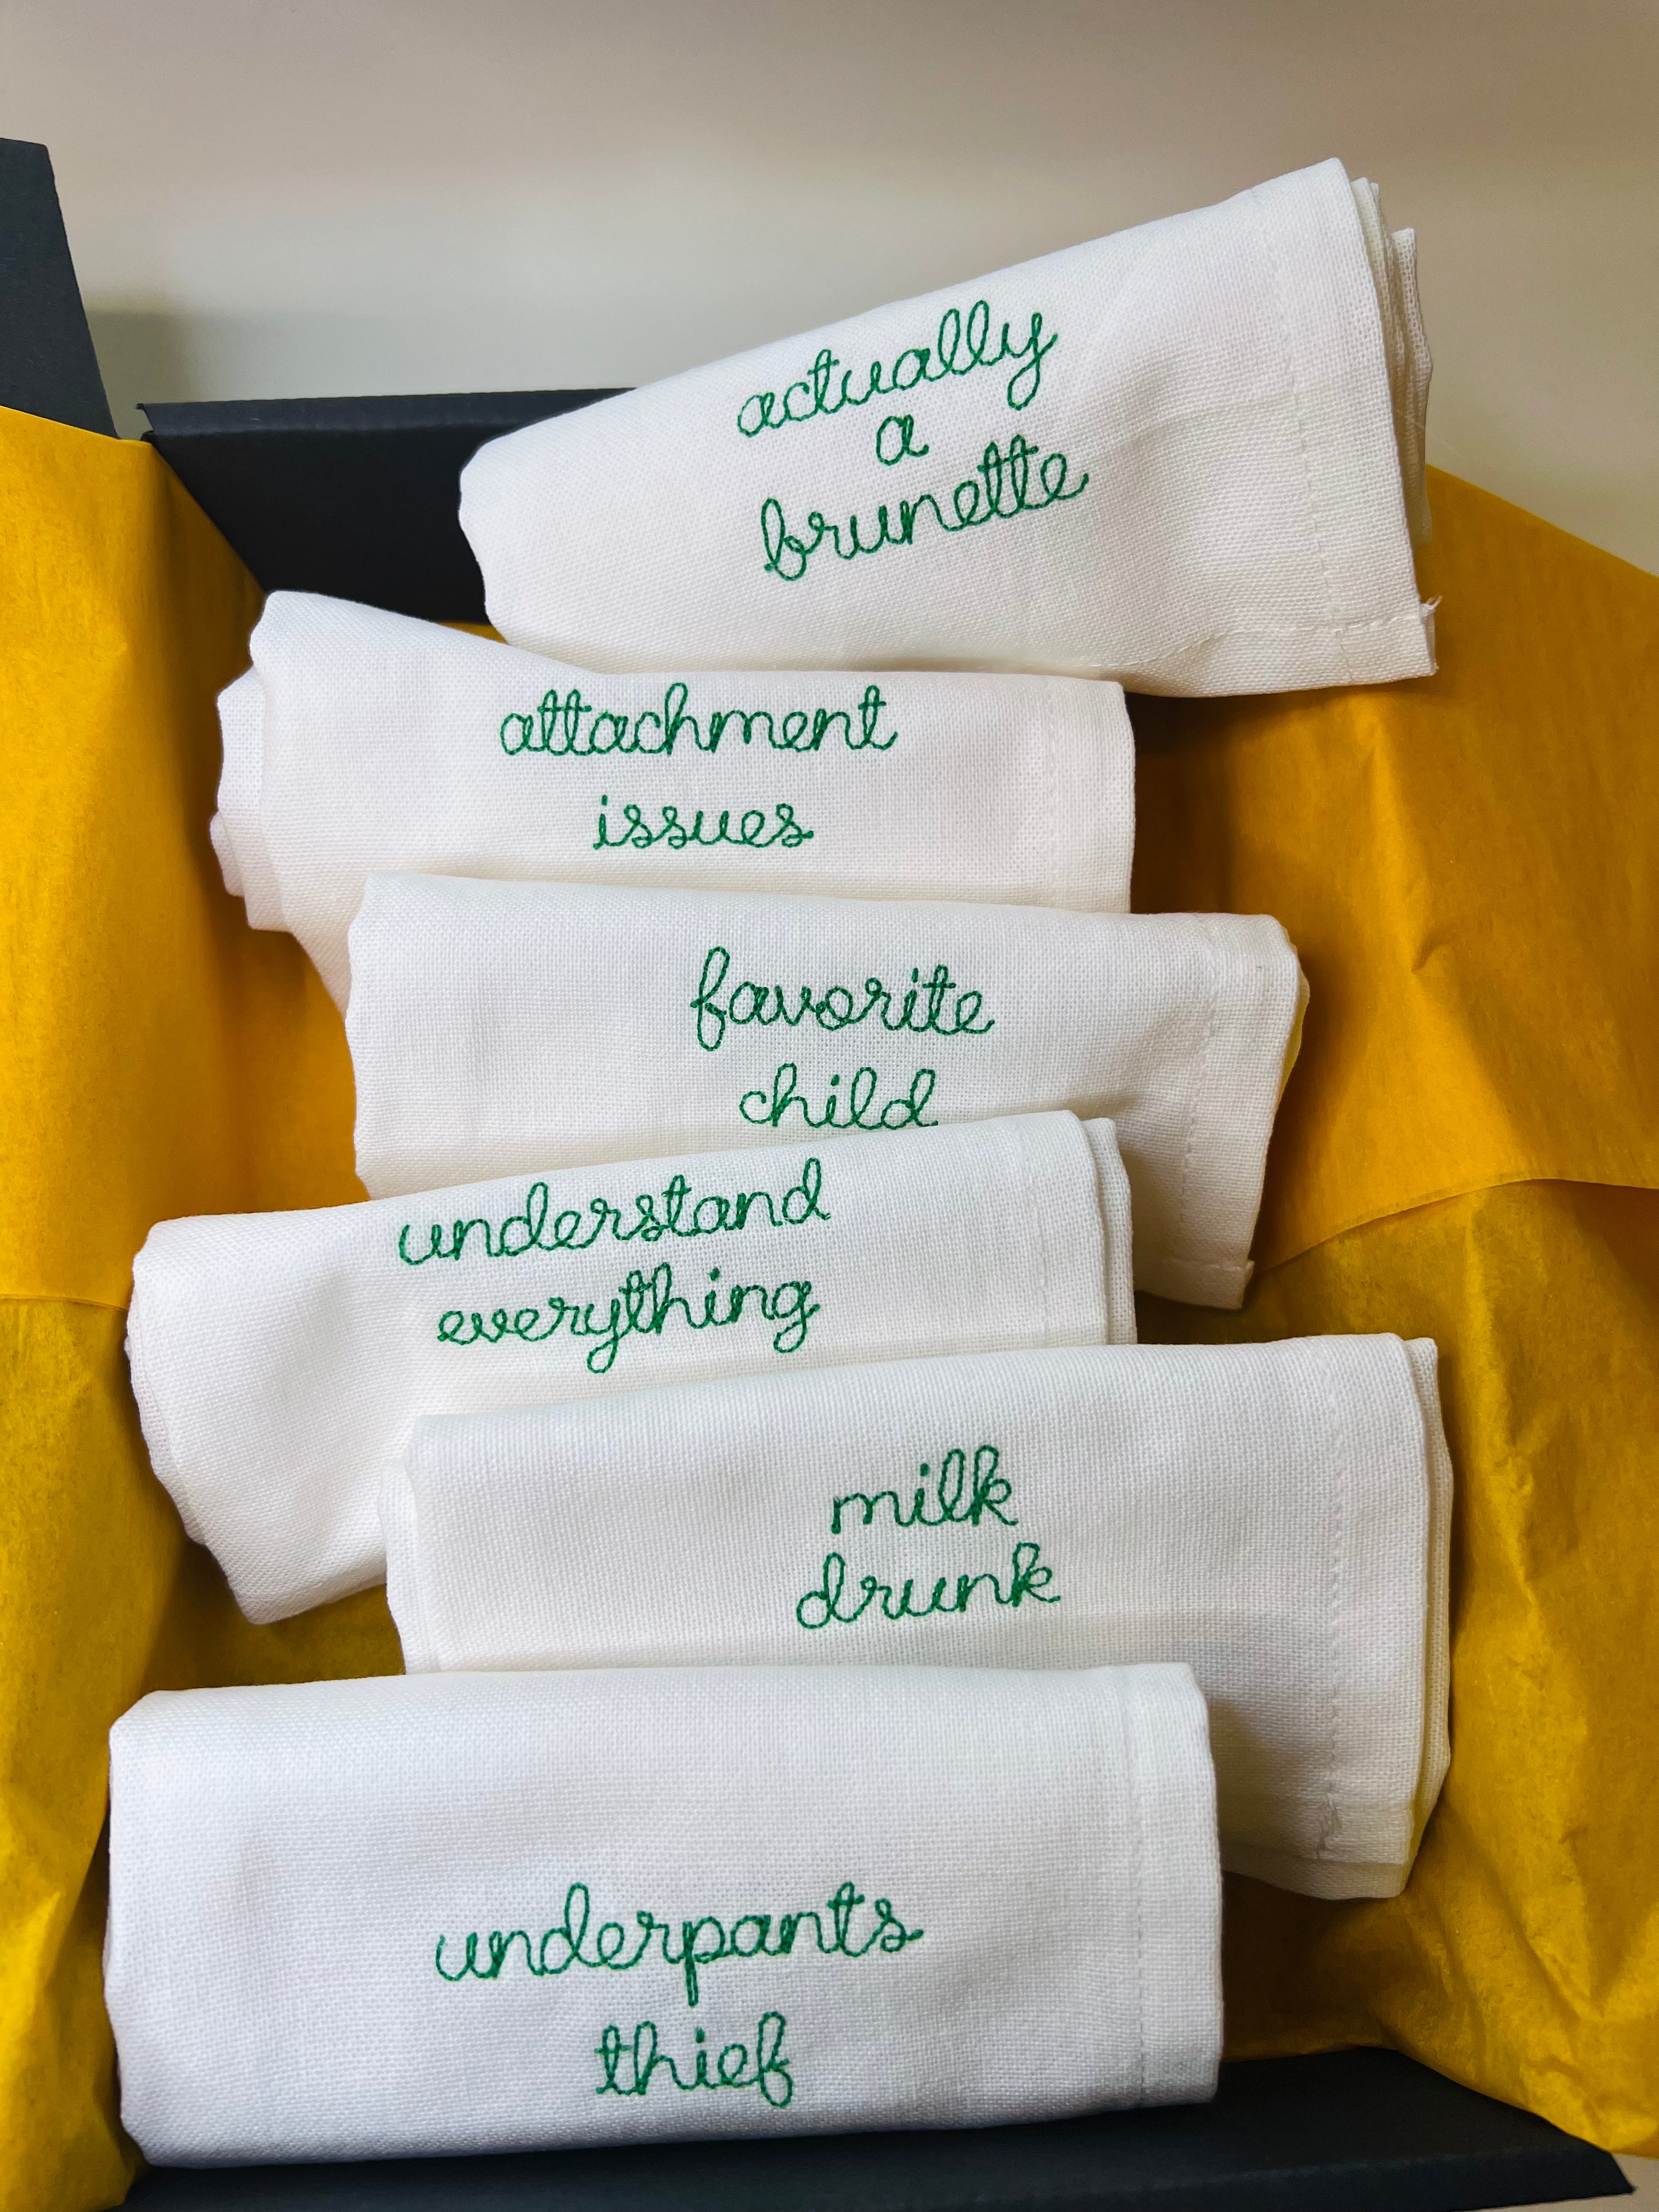 actually
a
brunette
attachment
issues
favorite
child
understand
everything
milk
drunk
underpants
thief